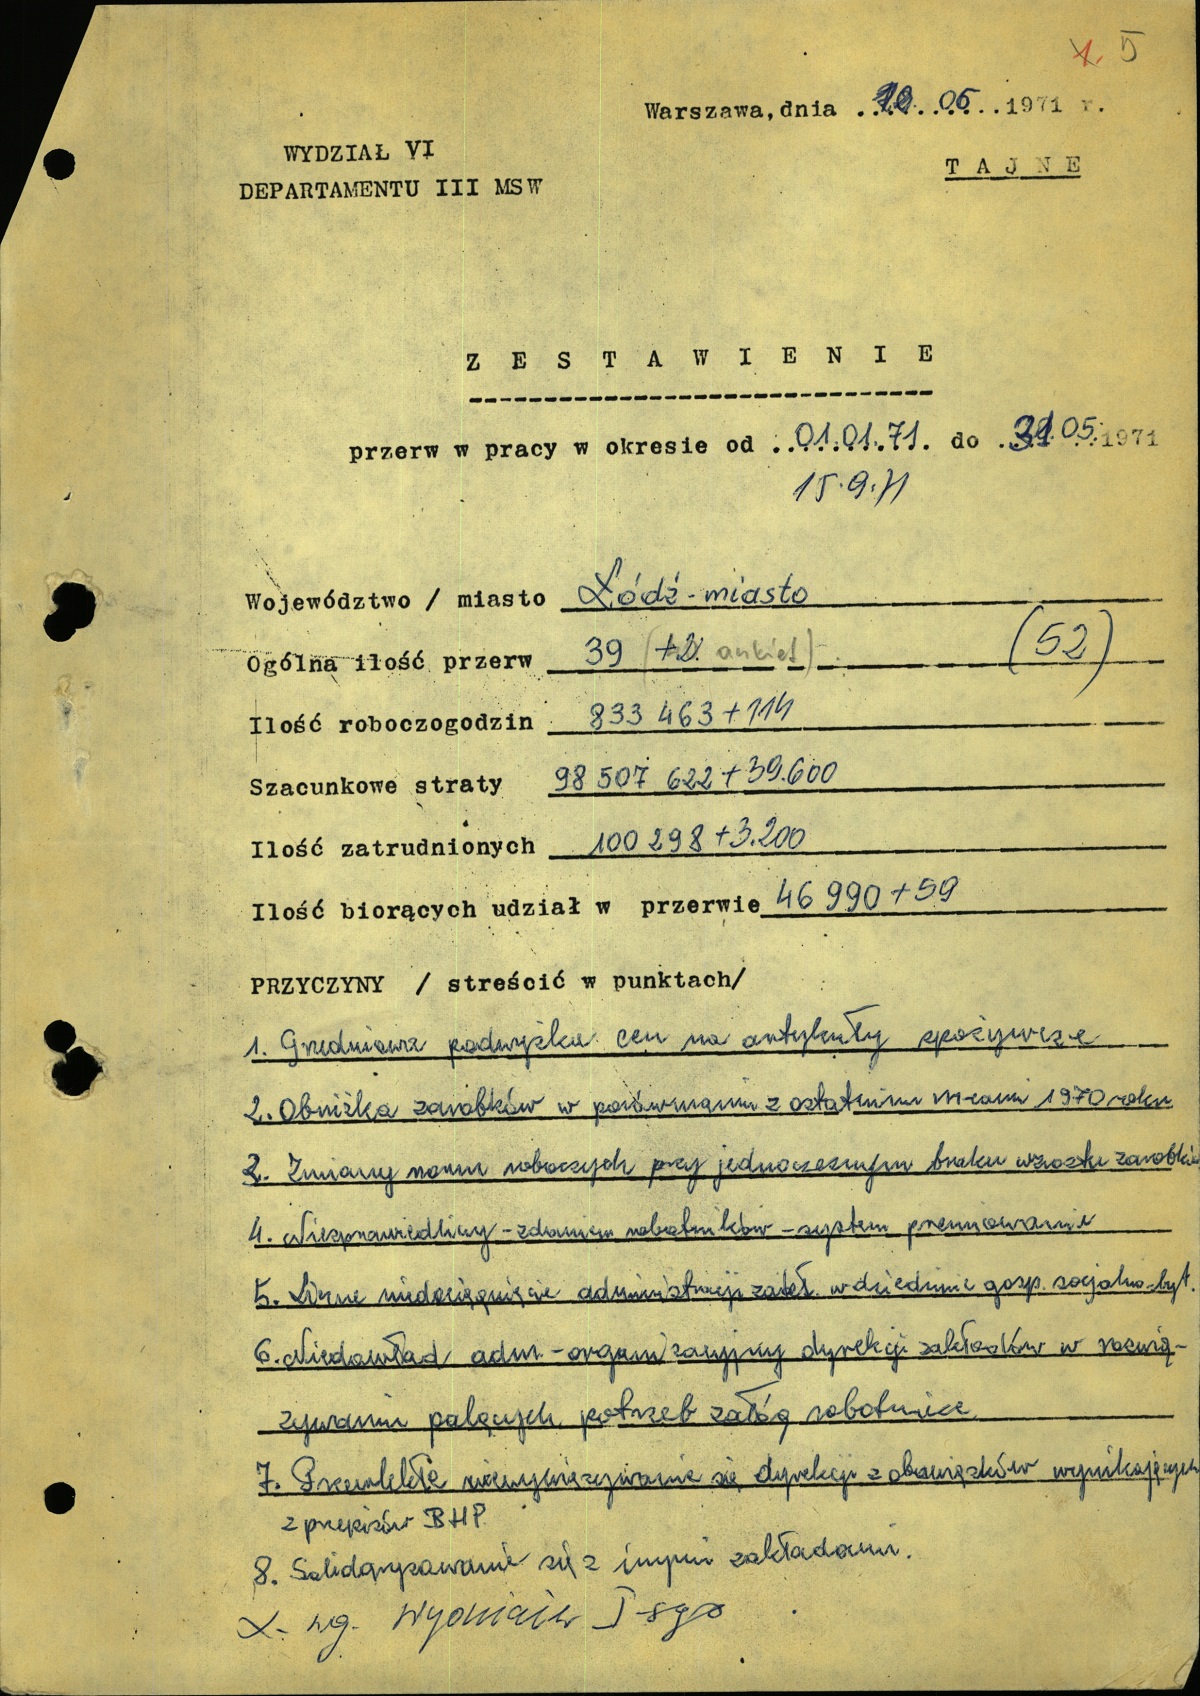 1. 5
Warszawa, dnia ........ 05 ...1971 r.
WYDZIAŁ VI
DEPARTAMENTU III MSW
T A J N E
Z E S T A W I E N I E
przerw w pracy w okresie od 01.01.71. do 31.05.1971
15.9.71
Województwo / miasto Łódź - miasto
Ogólna ilość przerw 39 (+2 ankiet) (52)
Ilość roboczogodzin 833 463 + 114
Szacunkowe straty 98 507 622 + 39.600
Ilość zatrudnionych 100 298 + 3.200
Ilość biorących udział w przerwie 46 990 + 59
PRZYCZYNY / streścić w punktach/
1. Grudniowa podwyżka cen na artykuły spożywcze
2. Obniżka zarobków w porównaniu z ostatnimi m-cami 1970 roku
3. Zmiany norm roboczych przy jednoczesnym braku wzrostu zarobków
4. Niesprawiedliwy - zdaniem robotników - system premiowania
5. Liczne niedociągnięcia administracji zakł. w dziedzinie gosp. socjalno-byt.
6. Niedowład adm. - organizacyjny dyrekcji zakładów w rozwią-
zywaniu palących potrzeb załóg robotnicz.
7. Przewlekłe niewywiązywanie się dyrekcji z obowiązków wynikających
z przepisów BHP
8. Solidaryzowanie się z innymi zakładami.
wg.